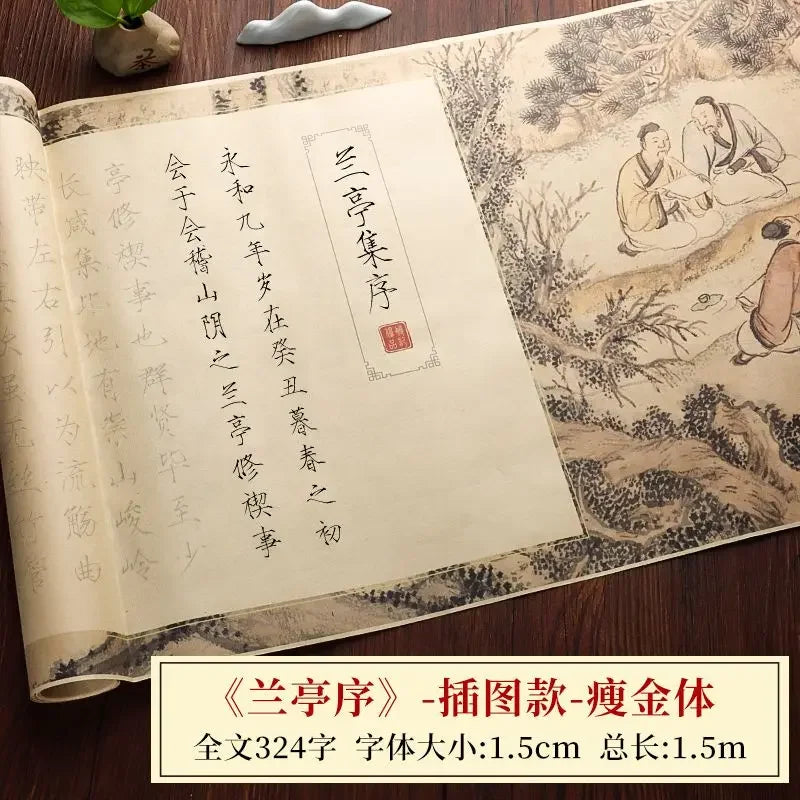 兰亭集序
永和九年岁在癸丑暮春之初
会于会稽山阴之兰亭修禊事
亭修禊事也群贤毕至少
长咸集此地有崇山峻岭
映带左右引以为流觞曲
次虽无丝竹管
《兰亭序》-插图款-瘦金体
全文324字 字体大小:1.5cm 总长:1.5m